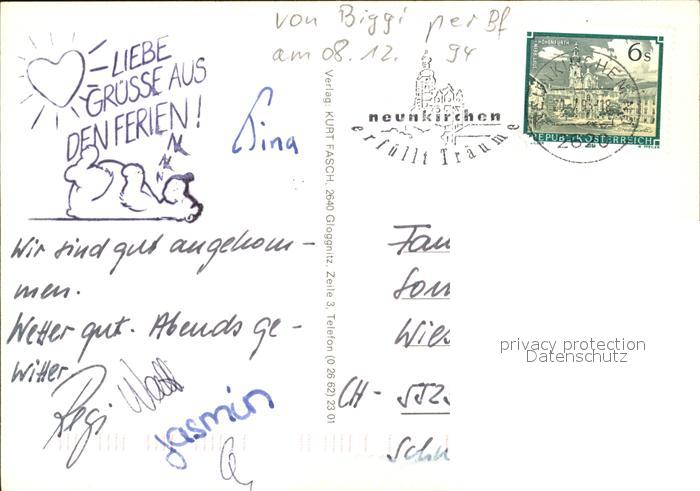 von Biggi per Bf
am 08. 12. 94
LIEBE
GRÜSSE AUS
DEN FERIEN!
Tina
Wir sind gut angekom-
men.
Wetter gut. Abends ge-
witter.
Regi
Walt
jasmin
Verlag: KURT FASCH, 2640 Gloggnitz, Zeile 3, Telefon (0 26 62) 23 01
neunkirchen
erfüllt Träume
6s
REPUBLIK ÖSTERREICH
2620
Fam
Son
Wies
CH-
privacy protection
Datenschutz